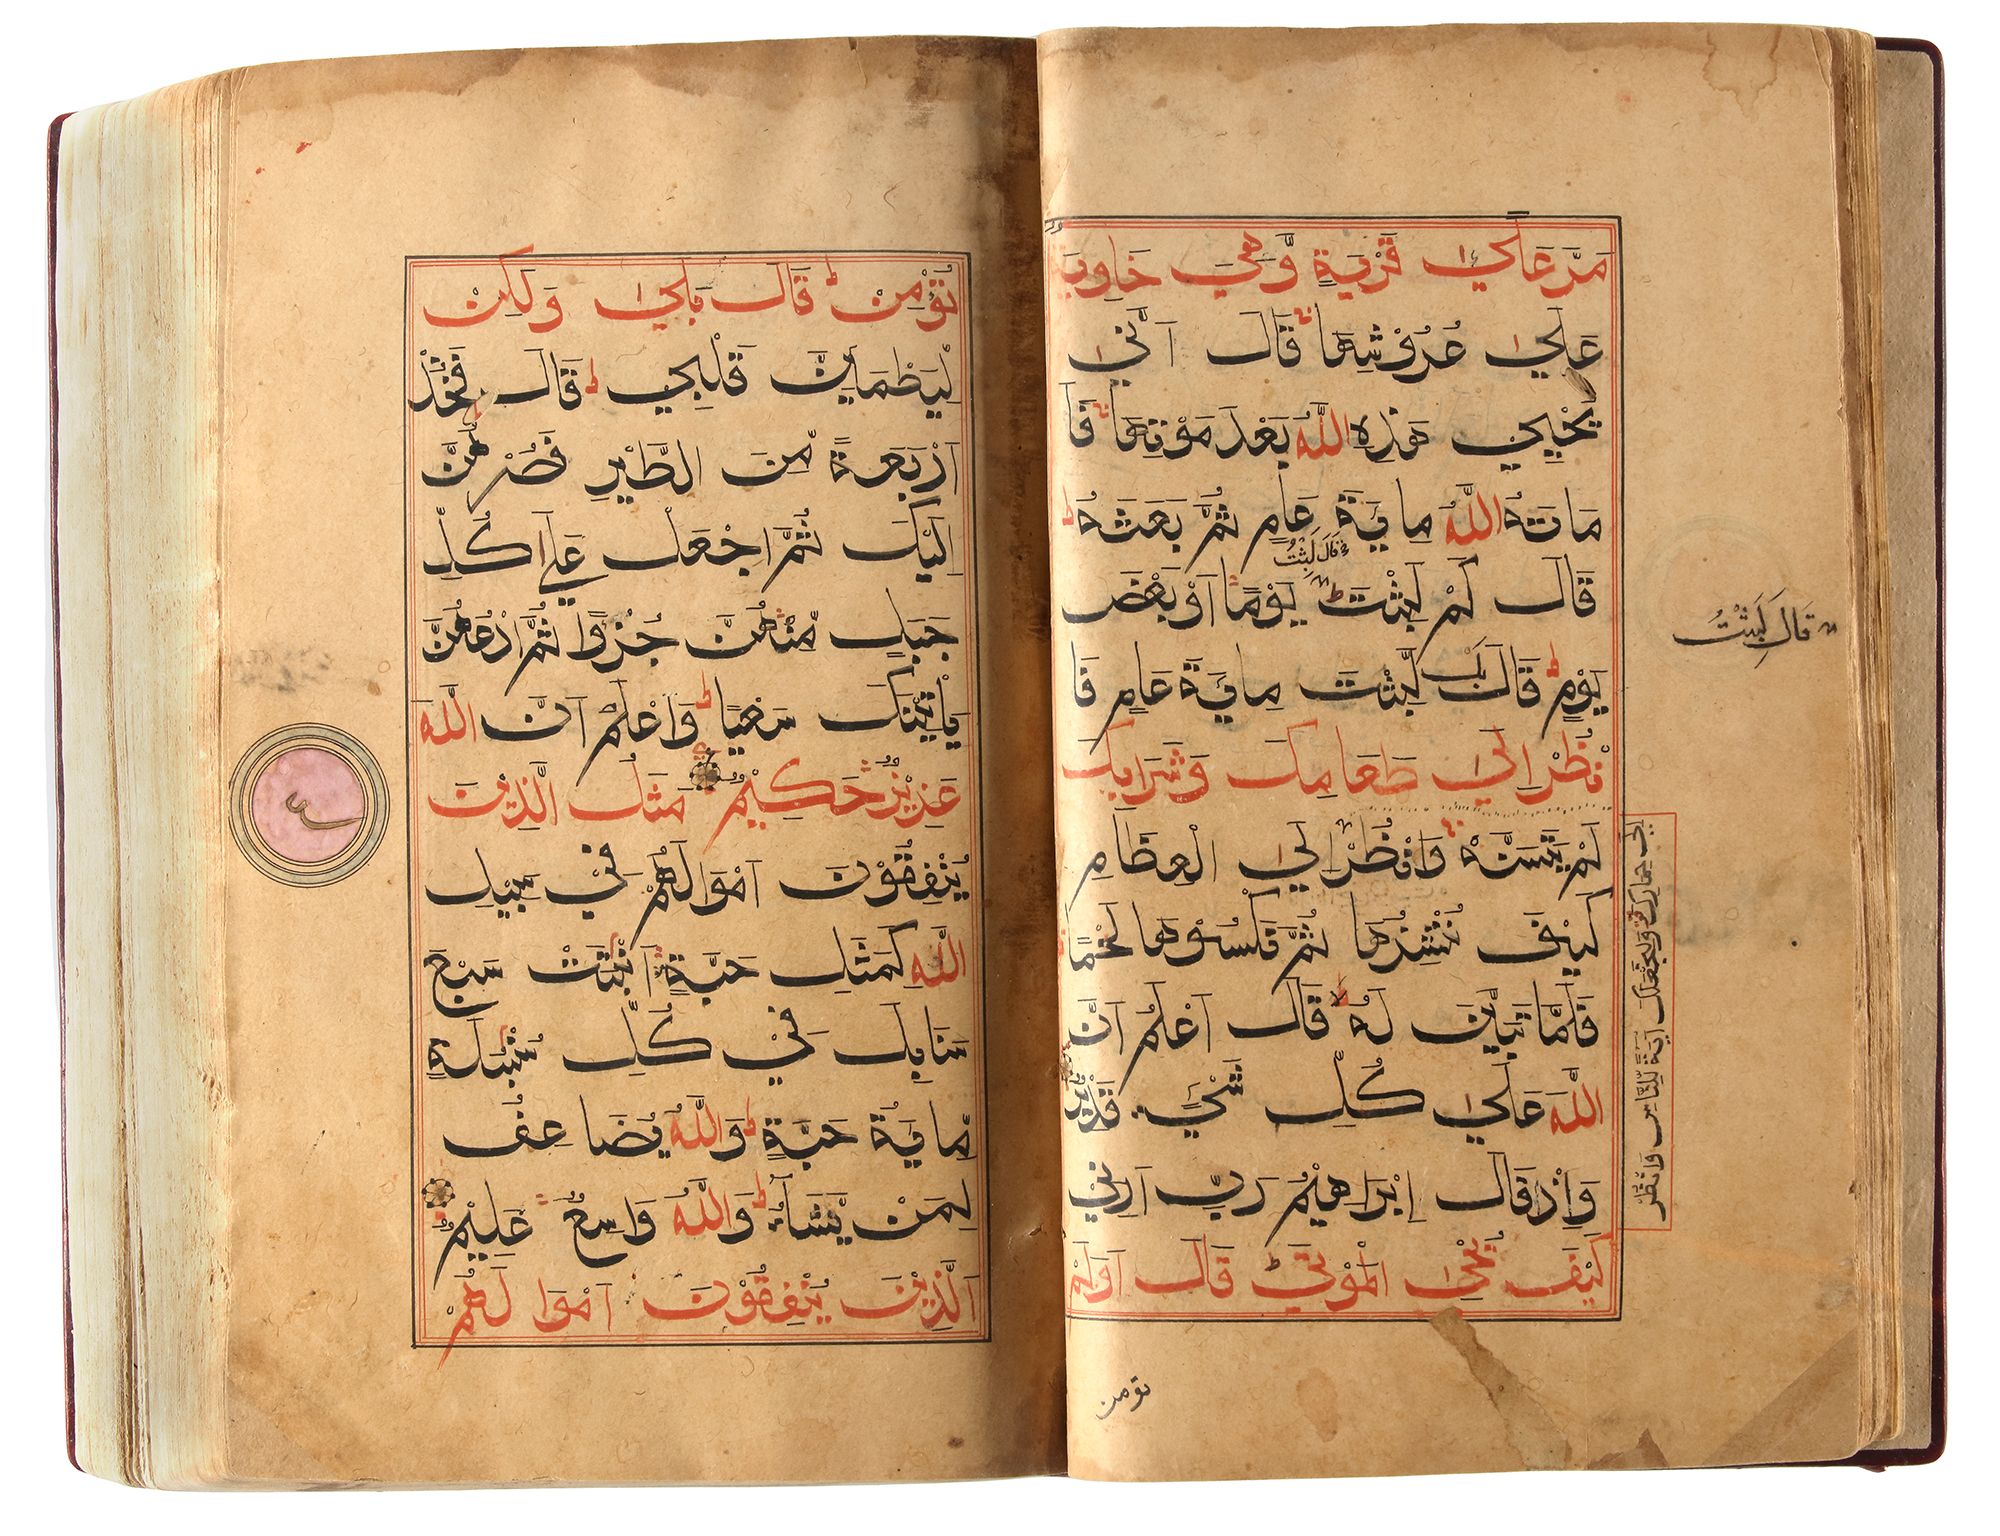 مَرَّ عَلَىٰ قَرْيَةٍ وَّهِيَ خَاوِيَةٌ
عَلَىٰ عُرُوْشِهَا قَالَ اَنّٰي
يُحْيِيْ هٰذِهِ اللّٰهُ بَعْدَ مَوْتِهَا فَاَ
مَاتَهُ اللّٰهُ مِايَةَ عَامٍ ثُمَّ بَعَثَهُ
قَالَ لَبِثْتُ
قَالَ كَمْ لَبِثْتَ يَوْمًا اَوْ بَعْضَ
قَالَ لَبِثْتُ
يَوْمٍ قَالَ بَلْ لَبِثْتَ مِايَةَ عَامٍ فَا
نْظُرْ اِلَىٰ طَعَامِكَ وَشَرَابِكَ
لَمْ يَتَسَنَّهْ وَانْظُرْ اِلَي الْعِظَامِ
كَيْفَ نُنْشِزُهَا ثُمَّ نَكْسُوْهَا لَحْمًا
فَلَمَّا تَبَيَّنَ لَهُ قَالَ اَعْلَمُ اَنَّ
اللّٰهَ عَلَىٰ كُلِّ شَيْءٍ قَدِيْرٌ
وَاِذْ قَالَ اِبْرَاهِيْمُ رَبِّ اَرِنِيْ
كَيْفَ تُحْيِ الْمَوْتٰي قَالَ اَوَلَمْ
اِلَي حِمَارِكَ وَلِنَجْعَلَكَ اٰيَةً لِّلنَّاسِ وَانْظُرْ
تومن
تُؤْمِنْ قَالَ بَلَىٰ وَلٰكِنْ
لِّيَطْمَئِنَّ قَلْبِيْ قَالَ فَخُذْ
اَرْبَعَةً مِّنَ الطَّيْرِ فَصُرْهُنَّ
اِلَيْكَ ثُمَّ اجْعَلْ عَلٰي كُلِّ
جَبَلٍ مِّنْهُنَّ جُزْوًا ثُمَّ ادْعُهُنَّ
يَاْتِيْنَكَ سَعْيًا وَاعْلَمْ اَنَّ اللّٰهَ
عَزِيْزٌ حَكِيْمٌ مَثَلُ الَّذِيْنَ
يُنْفِقُوْنَ اَمْوَالَهُمْ فِيْ سَبِيْلِ
اللّٰهِ كَمَثَلِ حَبَّةٍ اَنْبَتَتْ سَبْعَ
سَنَابِلَ فِيْ كُلِّ سُنْبُلَةٍ
مِّايَةُ حَبَّةٍ وَاللّٰهُ يُضَاعِفُ
لِمَنْ يَّشَآءُ وَاللّٰهُ وَاسِعٌ عَلِيْمٌ
اَلَّذِيْنَ يُنْفِقُوْنَ اَمْوَالَهُمْ